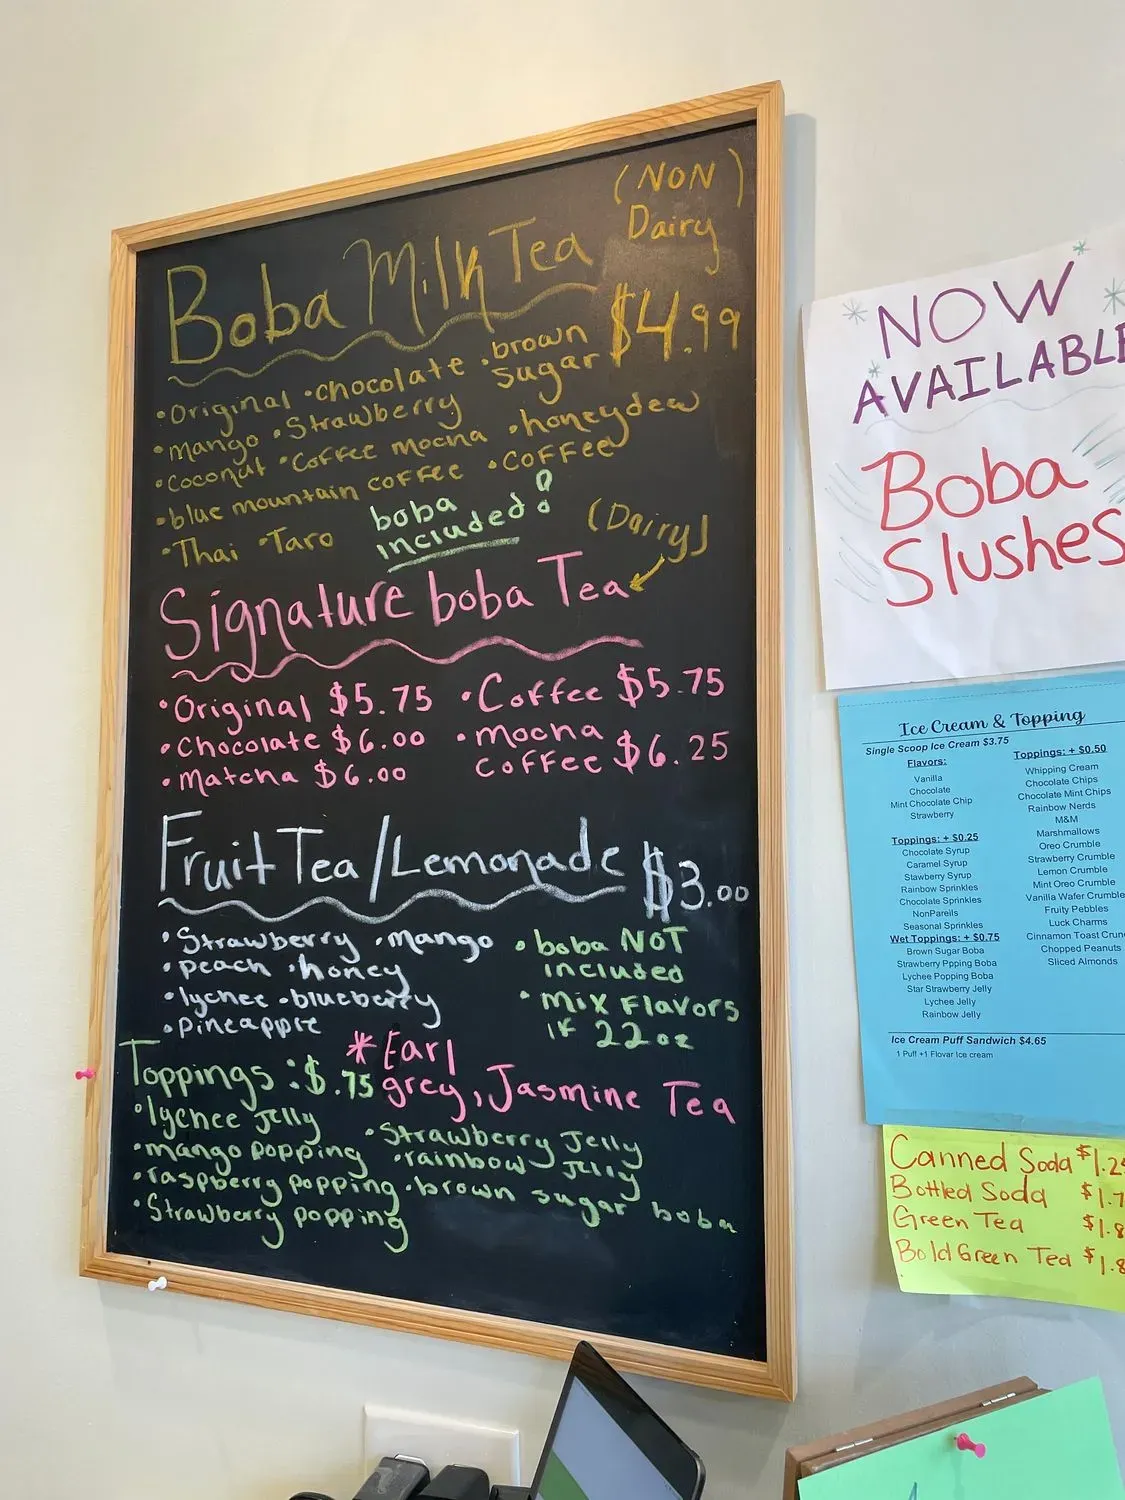 (NON)
Dairy
Boba Milk Tea
$4.99
•Original •chocolate •brown sugar
•mango •Strawberry
•coconut •Coffee mocha •honeydew
•blue mountain coffee •coffee
•Thai •Taro
boba
included!
(Dairy)
Signature boba Tea
•Original $5.75 •Coffee $5.75
•Chocolate $6.00 •mocha
•Matcha $6.00 coffee $6.25
Fruit Tea/Lemonade $3.00
•Strawberry •mango
•peach •honey
•lychee •blueberry
•pineapple
•boba NOT
included
•mix flavors
if 22oz
*Earl
grey, Jasmine Tea
Toppings: $.75
•lychee Jelly
•mango popping
•raspberry popping
•Strawberry popping
•Strawberry Jelly
•rainbow Jelly
•brown sugar boba
NOW
AVAILABLE
Boba
Slushes
Ice Cream & Topping
Single Scoop Ice Cream $3.75
Flavors:
Vanilla
Chocolate
Mint Chocolate Chip
Strawberry
Toppings: + $0.25
Chocolate Syrup
Caramel Syrup
Stawberry Syrup
Rainbow Sprinkles
Chocolate Sprinkles
NonPareils
Seasonal Sprinkles
Wet Toppings: + $0.75
Brown Sugar Boba
Strawberry Ppping Boba
Lychee Popping Boba
Star Strawberry Jelly
Lychee Jelly
Rainbow Jelly
Toppings: + $0.50
Whipping Cream
Chocolate Chips
Chocolate Mint Chips
Rainbow Nerds
M&M
Marshmallows
Oreo Crumble
Strawberry Crumble
Lemon Crumble
Mint Oreo Crumble
Vanilla Wafer Crumble
Fruity Pebbles
Luck Charms
Cinnamon Toast Crun
Chopped Peanuts
Sliced Almonds
Ice Cream Puff Sandwich $4.65
1 Puff +1 Flovar Ice cream
Canned Soda $1.2
Bottled Soda $1.7
Green Tea $1.8
Bold Green Tea $1.8